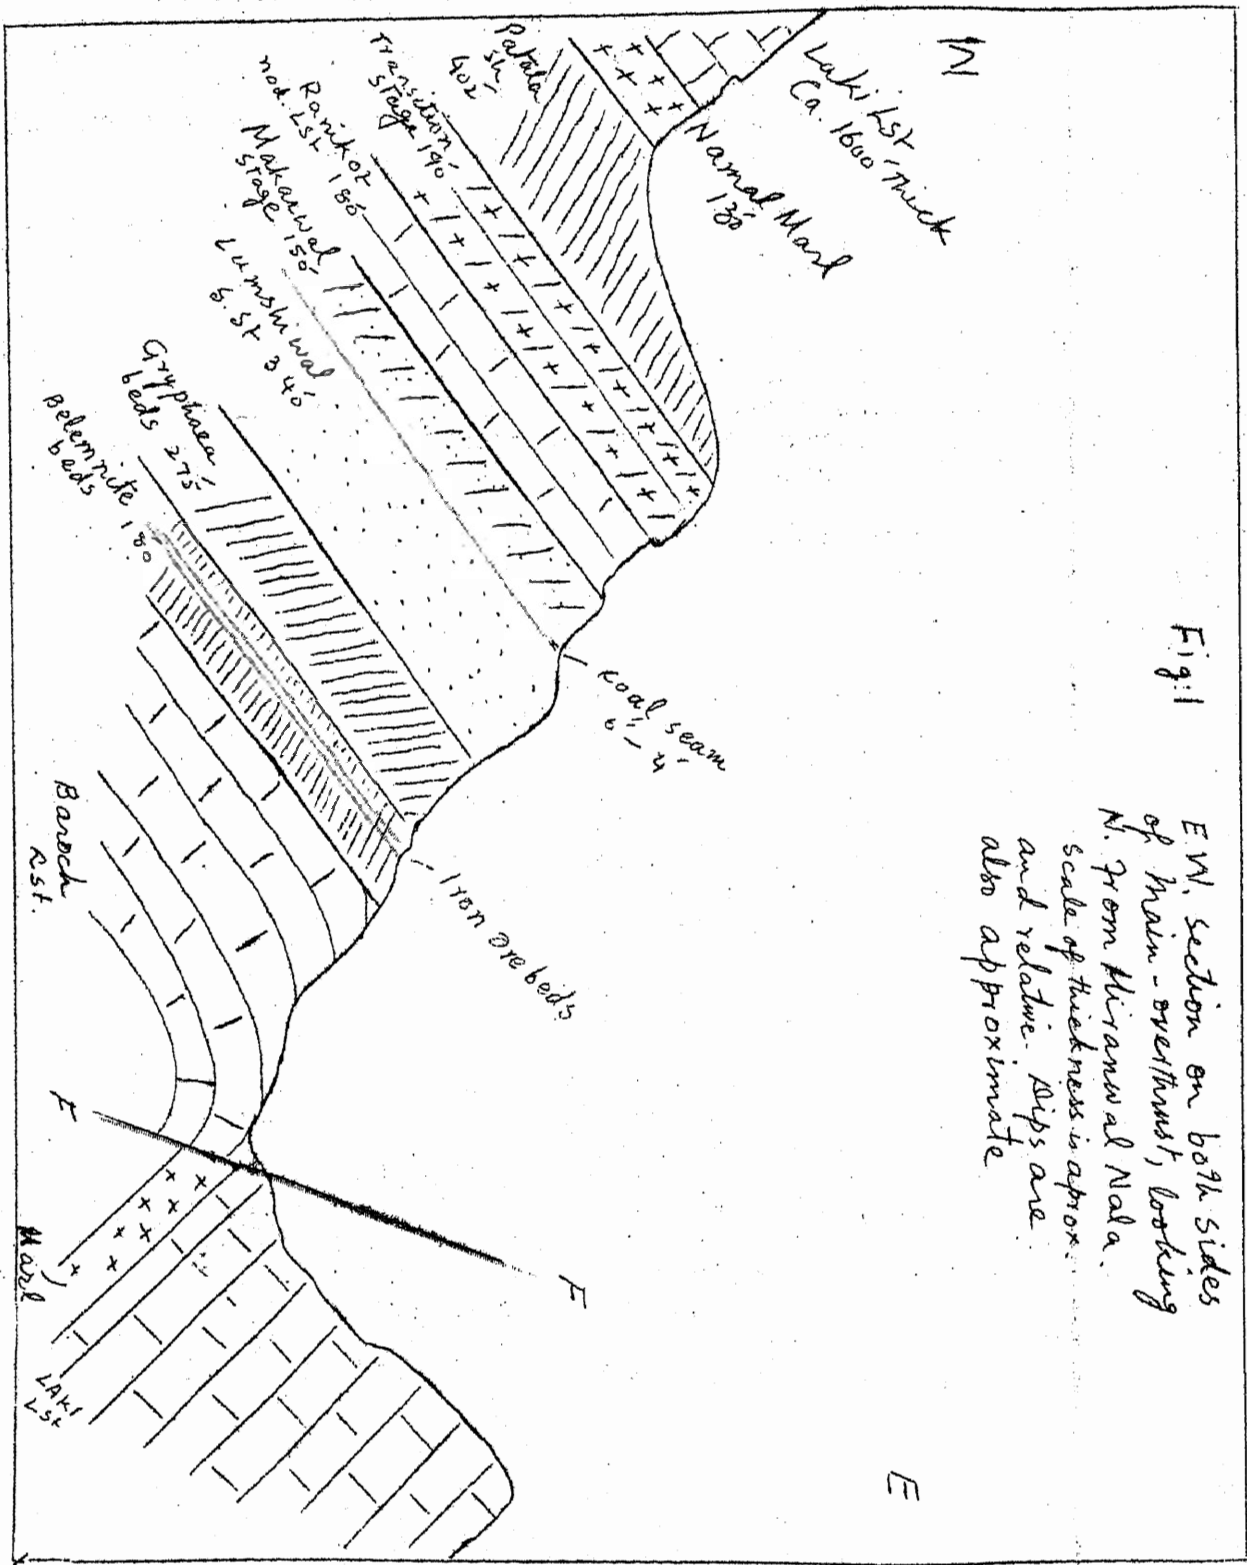 Fig:1
E.W. section on both sides
of Main-overthrust, looking
N. From Miranwal Nala.
scale of thickness is aprox.
and relative. Dips are
also approximate
W
E
Laki Lst
Ca. 1600' Thick
Namal Marl
130'
Patala
sh,
402'
Transition
stage 190'
Ranikot
nod. Lst 186'
Makarwal
stage 150'
Lumshiwal
S.St 340'
Gryphaea
beds 275'
Belemnite
beds 180
Koal seam
Iron ore beds
Baroch
Lst.
F
F
Marl
LAKI
Lst